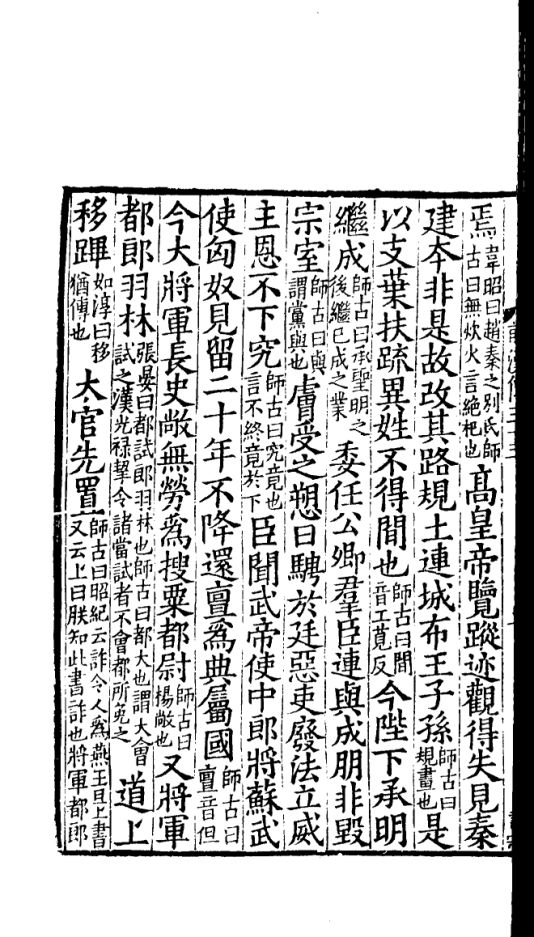 焉韋昭曰趙秦之別氏師古曰無炊火言絶祀也高皇帝覽蹤迹觀得失見秦
建本非是故改其路規土連城布王子孫師古曰規畫也是
以支葉扶疏異姓不得間也師古曰間音工莧反今陛下承明
繼成師古曰承聖明之後繼已成之業委任公卿羣臣連與成朋非毀
宗室師古曰與謂黨與也膚受之愬日騁於廷惡吏廢法立威
主恩不下究師古曰究竟也言不終竟於下臣聞武帝使中郎將蘇武
使匈奴見留二十年不降還亶爲典屬國師古曰亶音但
今大將軍長史敞無勞爲搜粟都尉師古曰楊敞也又將軍
都郎羽林張晏曰都試郎羽林也師古曰都大也謂大會試之漢光祿挈令諸當試者不會都所免之道上
移蹕如淳曰移猶傳也太官先置師古曰昭紀云詐令人爲燕王旦上書又云上曰朕知此書詐也將軍都郎